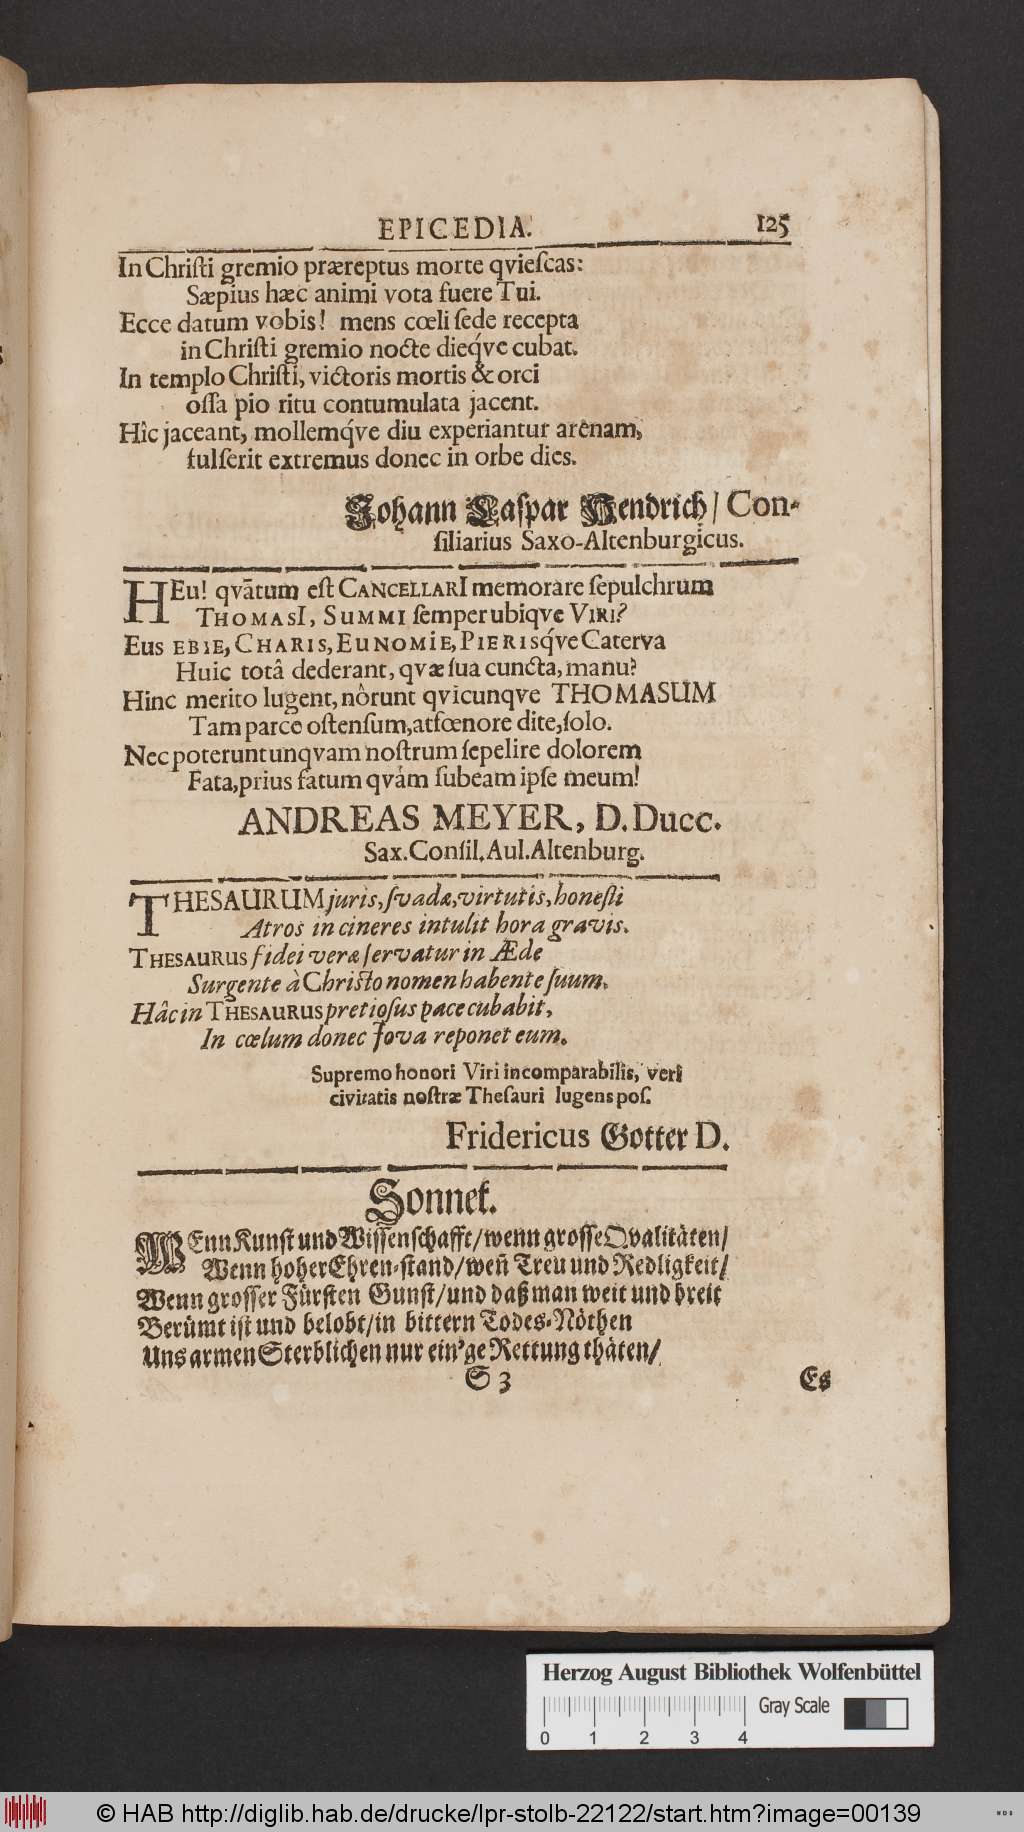 EPICEDIA. 125
In Chriſti gremio præreptus morte qvieſcas:
Sæpius hæc animi vota fuere Tui.
Ecce datum vobis! mens cœli ſede recepta
in Chriſti gremio nocte dieq́ve cubat.
In templo Chriſti, victoris mortis & orci
oſſa pio ritu contumulata jacent.
Hîc jaceant, mollemq́ve diu experiantur arênam,
fulſerit extremus donec in orbe dies.
Johann Caſpar Hendrich / Con-
ſiliarius Saxo-Altenburgicus.
HEu! qvātum eſt CANCELLARI memorare ſepulchrum
THOMASI, SUMMI ſemper ubiqve VIRI?
Eus EBIE, CHARIS, EUNOMIE, PIERISq́ve Caterva
Huic totâ dederant, qvæ ſua cuncta, manu?
Hinc merito lugent, nôrunt qvicunqve THOMASUM
Tam parce oſtenſum, at fœnore dite, ſolo.
Nec poterunt unqvam noſtrum ſepelire dolorem
Fata, prius fatum qvàm ſubeam ipſe meum!
ANDREAS MEYER, D. Ducc.
Sax. Conſil. Aul. Altenburg.
THESAURUM juris, ſvadæ, virtutis, honeſti
Atros in cineres intulit hora gravis.
THESAURUS fidei veræ ſervatur in Æde
Surgente à Chriſto nomen habente ſuum.
Hâc in THESAURUS pretioſus pace cubabit,
In cœlum donec Jova reponet eum.
Supremo honori Viri incomparabilis, veri
civitatis noſtræ Theſauri lugens poſ.
Fridericus Gotter D.
Sonnet.
WEnn Kunſt und Wiſſenſchafft / wenn groſſe Qvalitäten /
Wenn hoher Ehren-ſtand / weñ Treu und Redligkeit /
Wenn groſſer Fürſten Gunſt / und daß man weit und breit
Berümt iſt und belobt / in bittern Todes-Nöthen
Uns armen Sterblichen nur ein'ge Rettung thäten /
S 3 Es
Herzog August Bibliothek Wolfenbüttel
Gray Scale
0 1 2 3 4
© HAB http://diglib.hab.de/drucke/lpr-stolb-22122/start.htm?image=00139